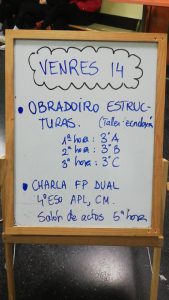 VENRES 14
• OBRADOIRO ESTRUC-
TURAS. (Taller tecnoloxía)
1ª hora: 3ºA
2ª hora: 3ºB
3ª hora: 3ºC
• CHARLA FP DUAL
4º ESO APL, CM.
Salón de actos 5ª hora